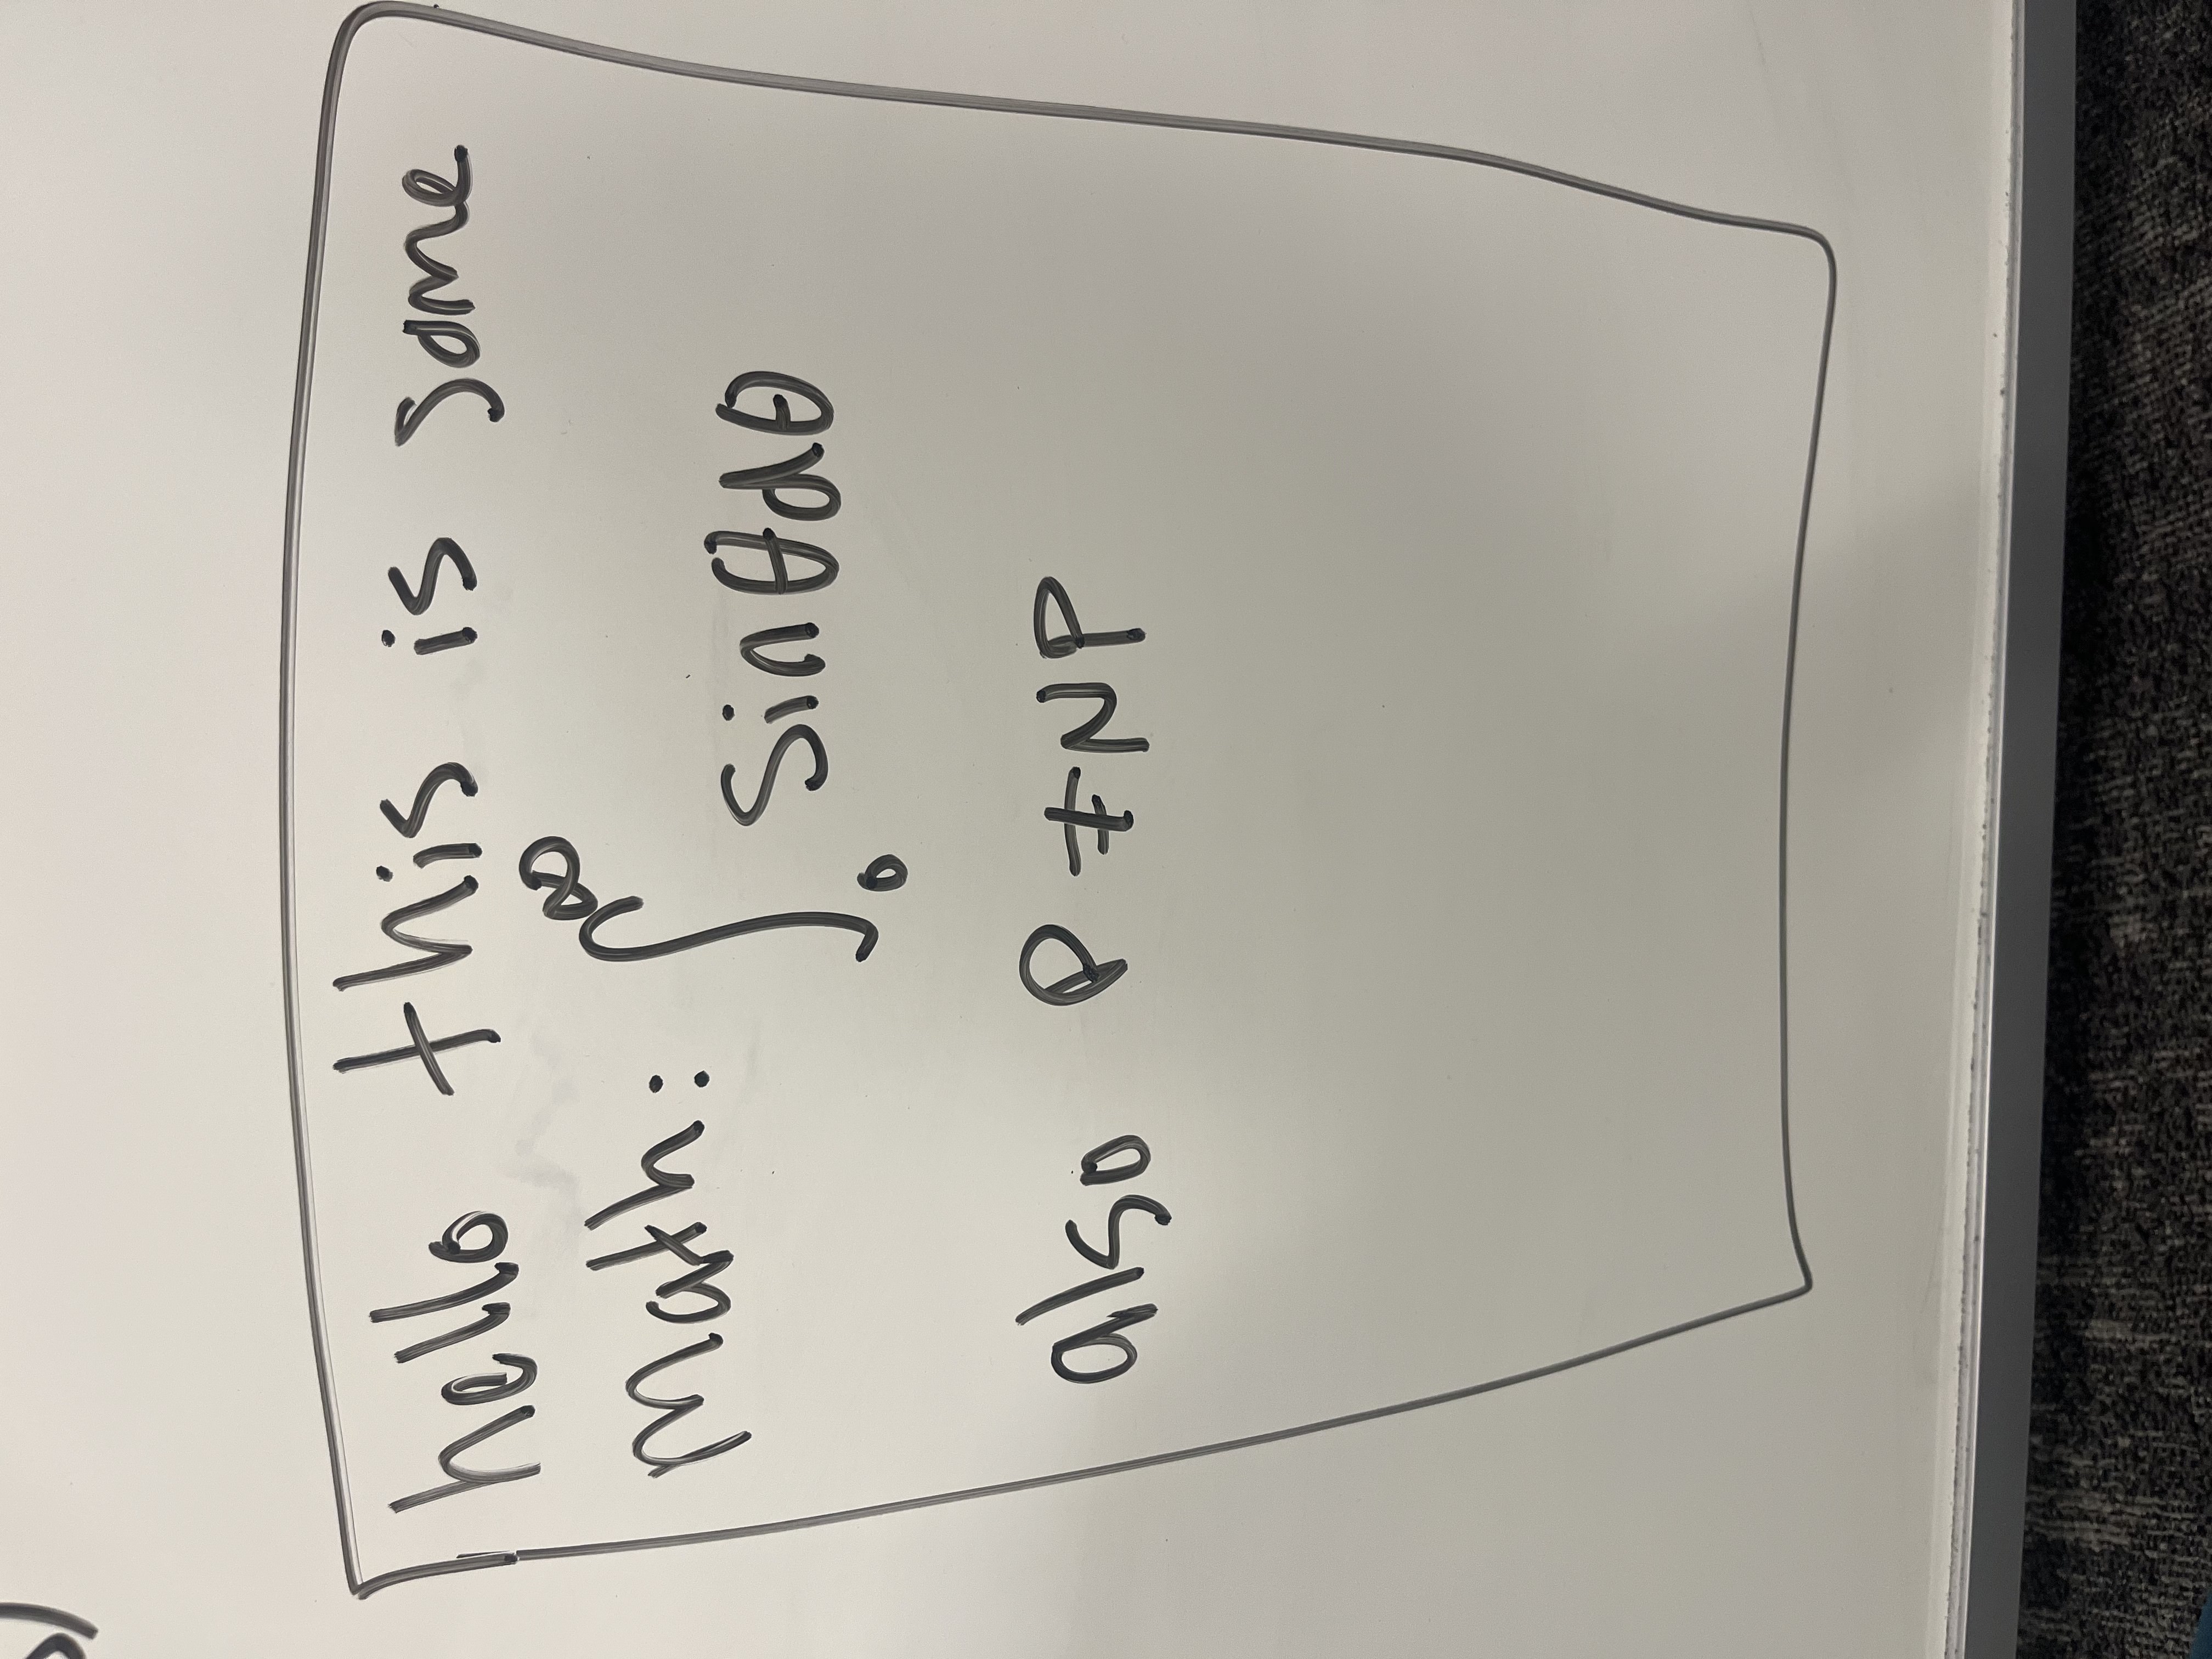 hello this is some
Math: ∫₀^∞ sinθdθ
also P ≠ NP